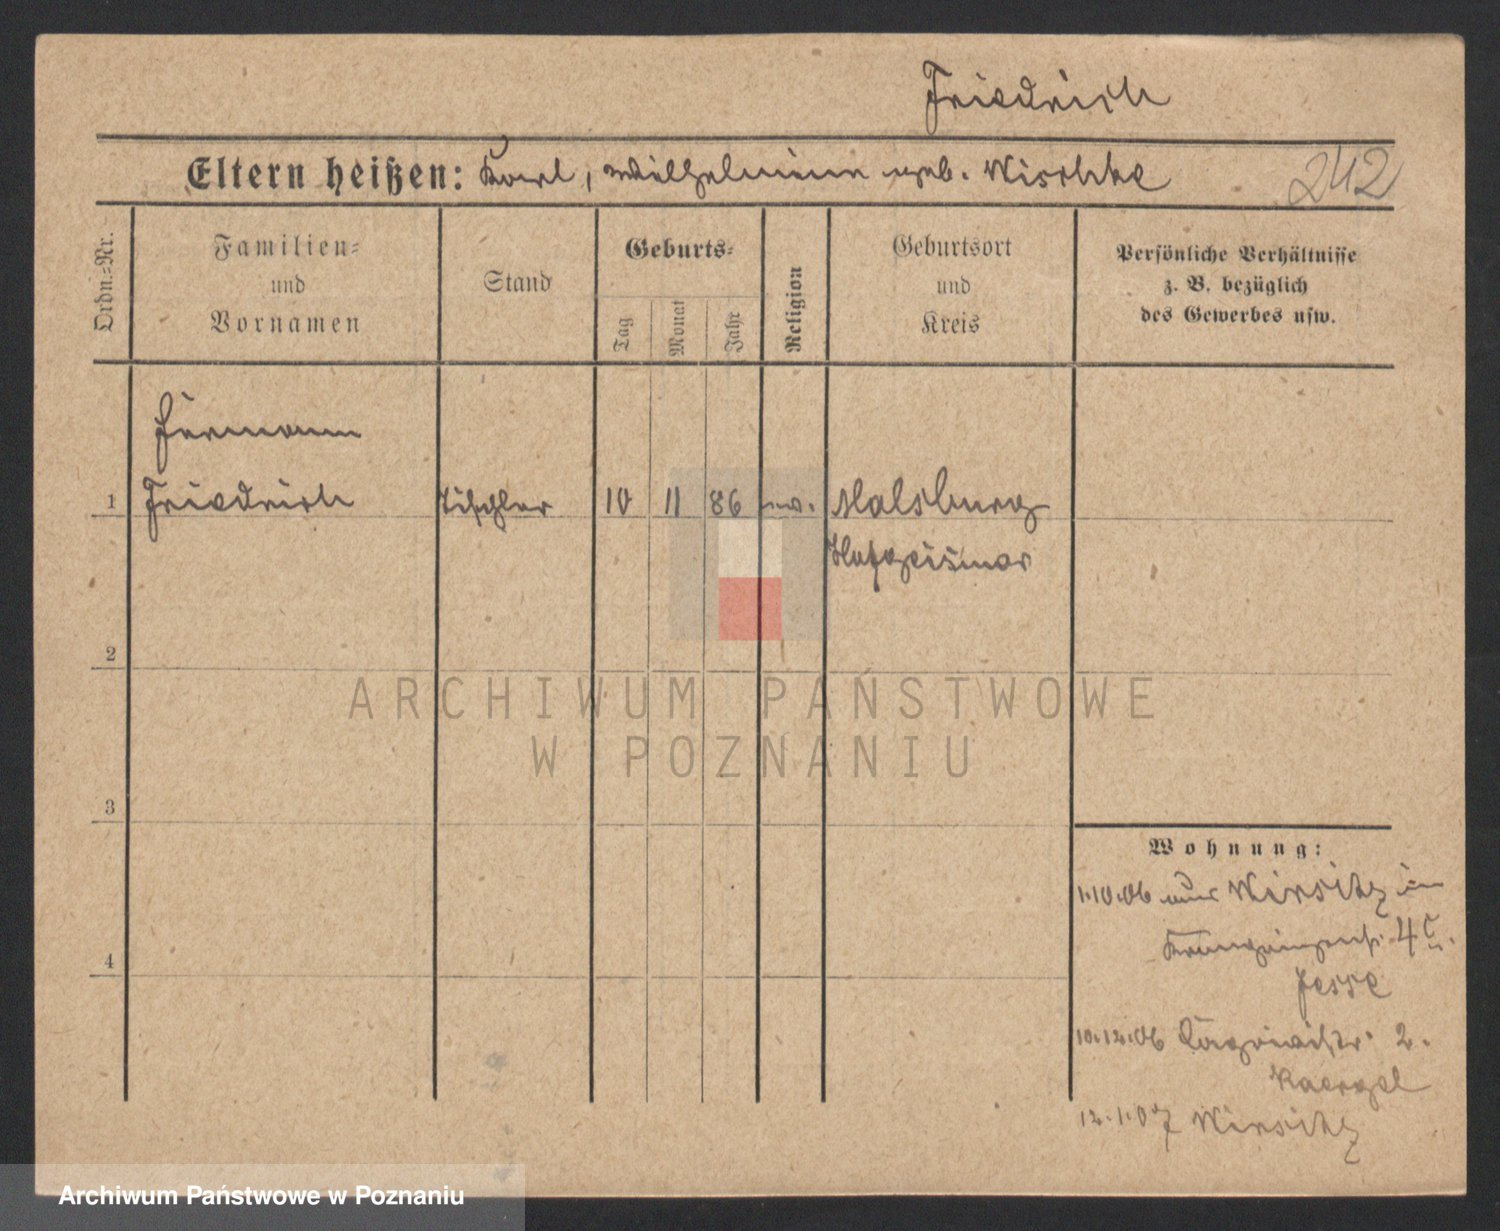 Friedrich
Eltern heißen: Karl, Wilhelmine geb. Nischke
242
Ordn.=Nr.
Familien=
und
Vornamen
Stand
Geburts=
Tag
Monat
Jahr
Religion
Geburtsort
und
Kreis
Persönliche Verhältnisse
z. B. bezüglich
des Gewerbes usw.
Hermann
1 Friedrich Tischler 10 11 86 ev. Malsburg
Hofgeismar
2
ARCHIWUM PAŃSTWOWE
W POZNANIU
3
Wohnung:
1.10.06 aus Wirsitz in
4
Jesse
10.12.06 2.
Kaergel
12.1.07 Wirsitz
4
Archiwum Państwowe w Poznaniu